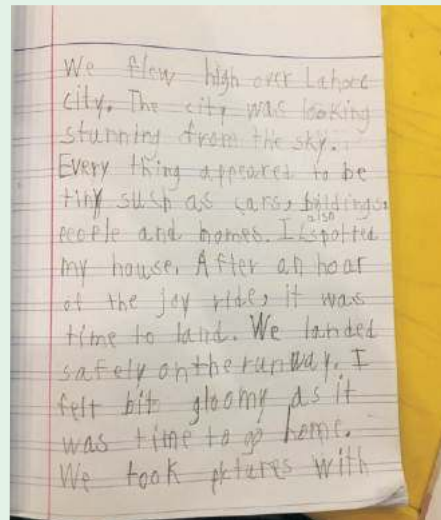 We flew high over Lahore
city. The city was looking
stunning from the sky.
Every thing appeared to be
tiny sush as cars, bildings,
people and homes. I also spotted
my house. After an hoar
of the joy ride, it was
time to land. We landed
safely on the runway. I
felt bit gloomy as it
was time to go home.
We took pktures with